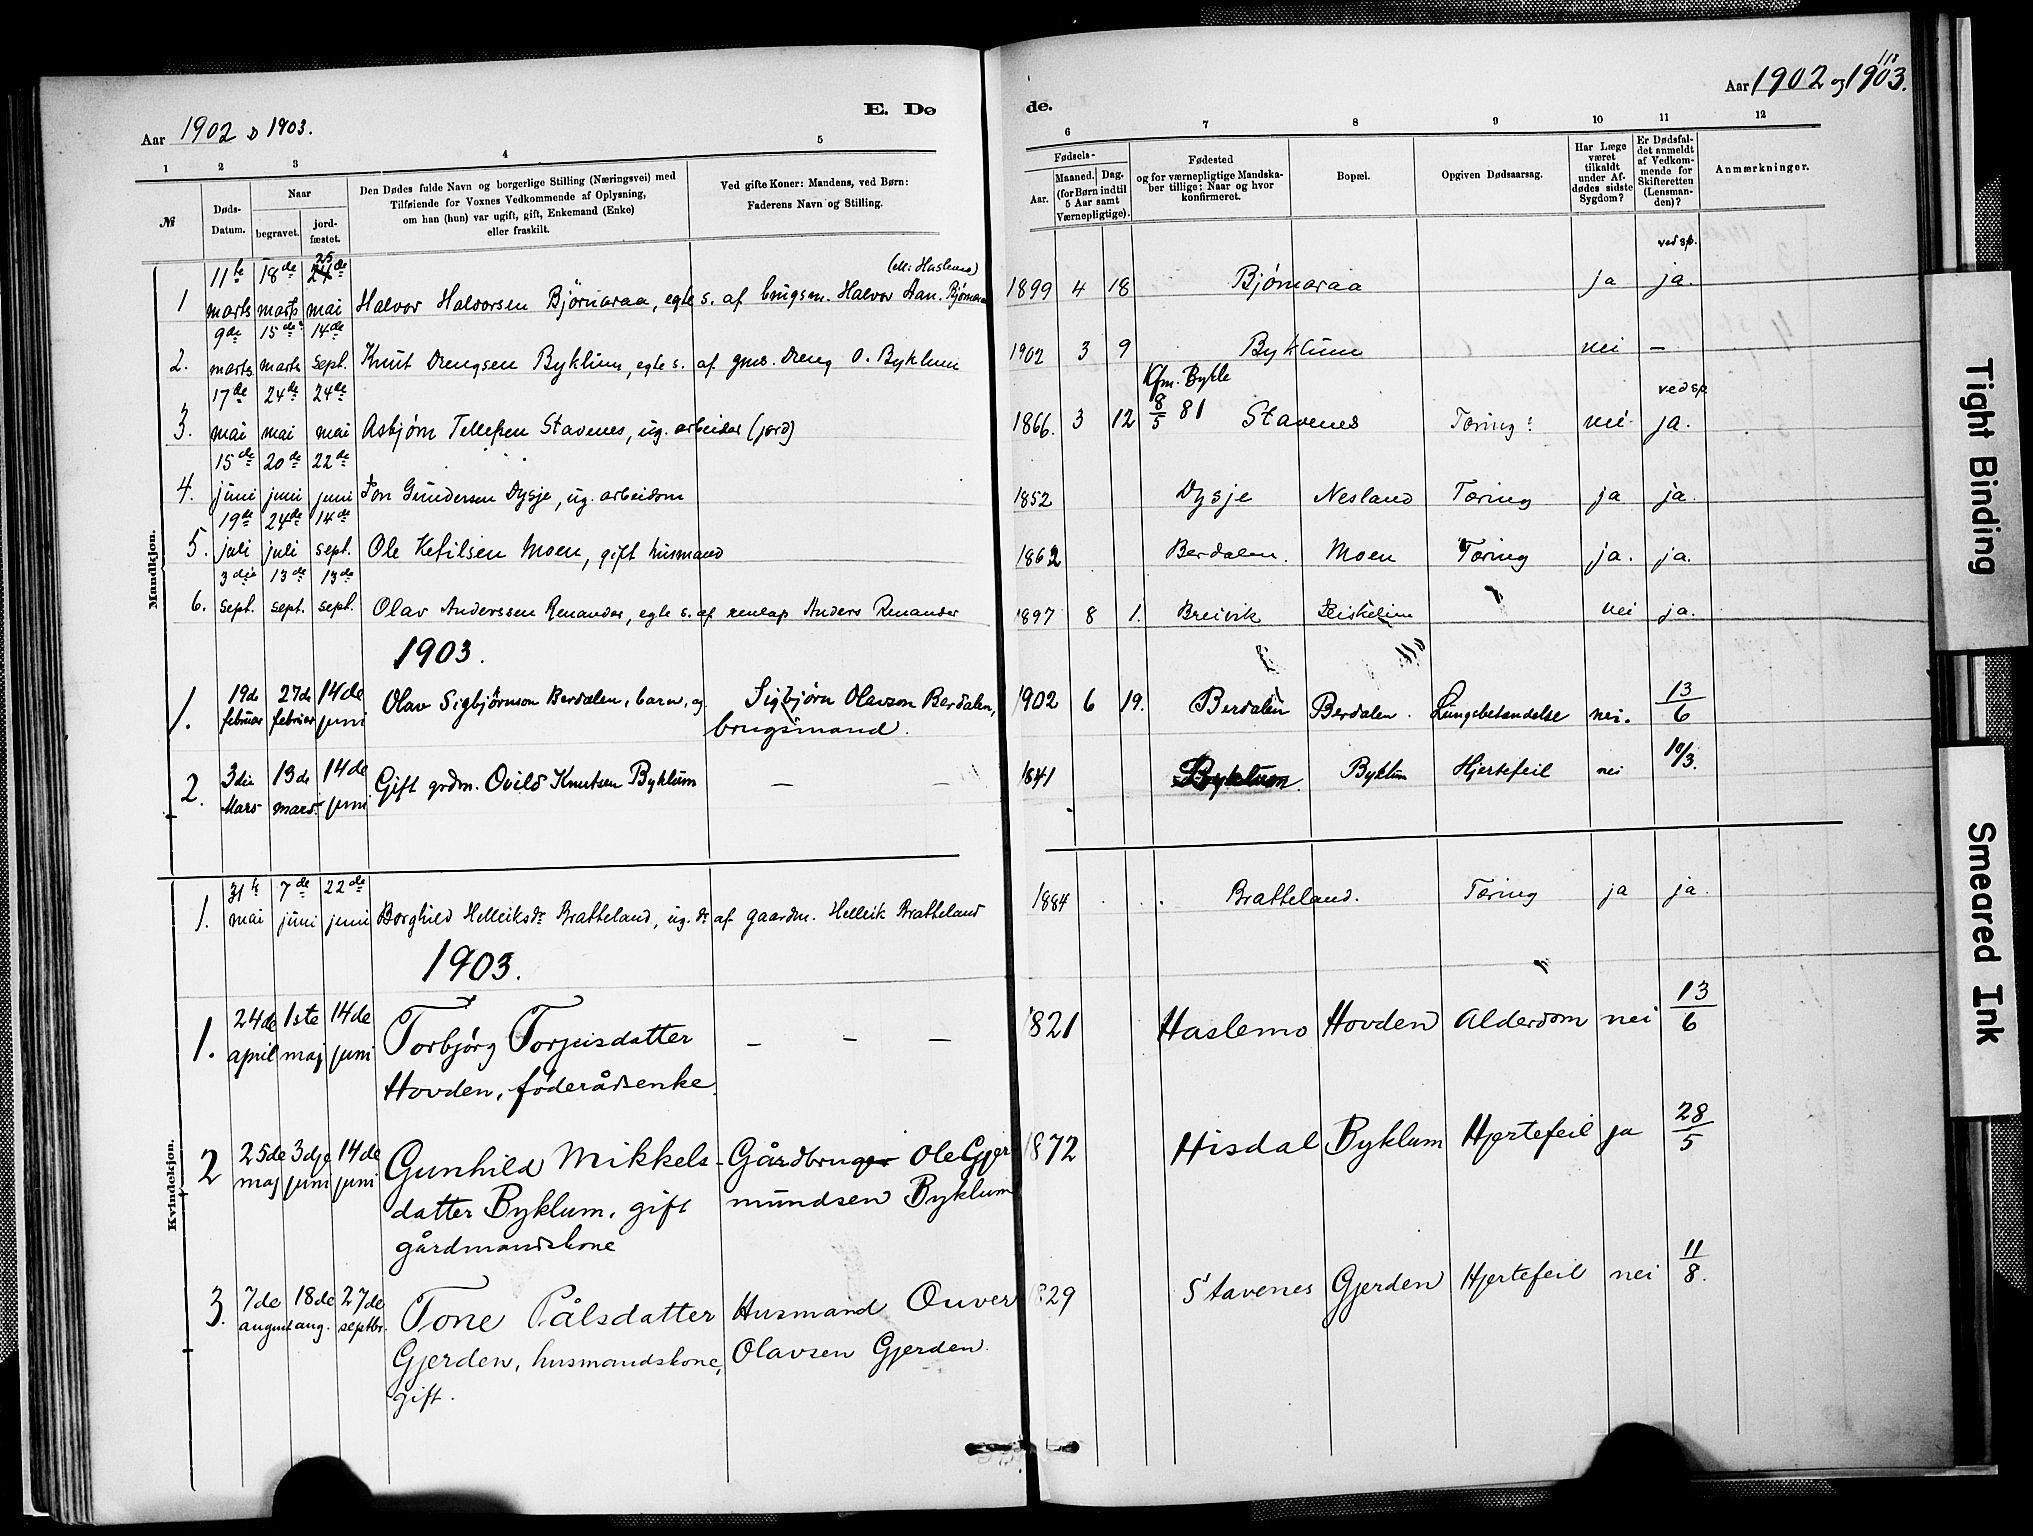 Aar 1902 og 1903.
E. Dø
de.
Aar 1902 og 1903.
118
1 2 3 4 5
6 7 8 9 10 11 12
№
Døds-
Datum.
Naar
begravet.
jord-
fæstet.
Den Dødes fulde Navn og borgerlige Stilling (Næringsvei) med
Tilføiende for Voxnes Vedkommende af Oplysning,
om han (hun) var ugift, gift, Enkemand (Enke)
eller fraskilt.
Ved gifte Koner: Mandens, ved Børn:
Faderens Navn og Stilling.
Fødsels-
Aar.
Maaned. Dag.
(for Børn indtil
5 Aar samt
Værnepligtige).
Fødested
og for værnepligtige Mandska-
ber tillige: Naar og hvor
konfirmeret.
Bopæl.
Opgiven Dødsaarsag.
Har Læge
været
tilkaldt
under Af-
dødes sidste
Sygdom?
Er Dødsfal-
det anmeldt
af Vedkom-
mende for
Skifteretten
(Lensman-
den)?
Anmærkninger.
Mandkjøn.
25 ved sp.
11te 18de 24de (ell: Haslemo)
1 marts marts mai Halvor Halvorsen Bjørnaraa, egte s. af brugsm. Halvor Aan. Bjørnaraa 1899 4 18 Bjørnaraa ja ja.
9de 15de 14de
2. marts marts sept. Knut Drengsen Byklum, egte s. af gmd. Dreng O. Byklum 1902 3 9 Byklum nei —
17de 24de 24de Kfm. Bykle ved sp
3. mai mai mai Asbjørn Tellefsen Stavenes, ug. arbeider (jord) 1866. 3 12 8/5 81 Stavenes Tæring: nei ja.
15de 20de 22de
4. juni juni juni Jon Gundersen Dysje, ug. arbeidsm 1852 Dysje Nesland Tæring ja ja.
19de 24de 14de
5. juli juli sept. Ole Ketilsen Moen, gift husmand 1862 Berdalen. Moen Tæring ja. ja.
3die 13de 13de
6. sept. sept. sept. Olav Anderssen Renander, egte s. af renlap Anders Renander 1897 8 1. Breivik nei ja.
1903.
19de 27de 14de
1. februar februar juni Olav Sigbjørnson Berdalen, barn, ug. Sigbjørn Olavson Berdalen, 1902 6 19. Berdalen Berdalen. Lungebetændelse nei. 13/6
brugsmand.
3die 13de 14de
2. Mars mars juni Gift grdm. Ovild Knutsen Byklum — 1841 Byklum. Byklum Hjertefeil nei 10/3.
Kvindekjøn.
31te 7de 22de
1. mai juni juni Borghild Helleiksdr. Bratteland, ug. dr af gaardm. Helleik Bratteland 1884 Bratteland. Tæring ja ja.
1903.
24de 1ste 14de
1. april maj juni Torbjørg Torjusdatter — — — 1821 Haslemo Hovden Alderdom nei 13/6
Hovden, føderådsenke.
25de 3dje 14de
2 maj juni juni Gunhild Mikkels- Gårdbruger Ole Gjer 1872 Hisdal Byklum Hjertefeil ja 28/5
datter Byklum, gift mundsen Byklum
gårdmandskone
7de 18de 27de
3. august aug. septbr. Tone Pålsdatter Husmand Ouver 1829 Stavenes Gjerden Hjertefeil nei 11/8.
Gjerden, husmandskone, Olavsen Gjerden.
gift.
Tight Binding
Smeared Ink